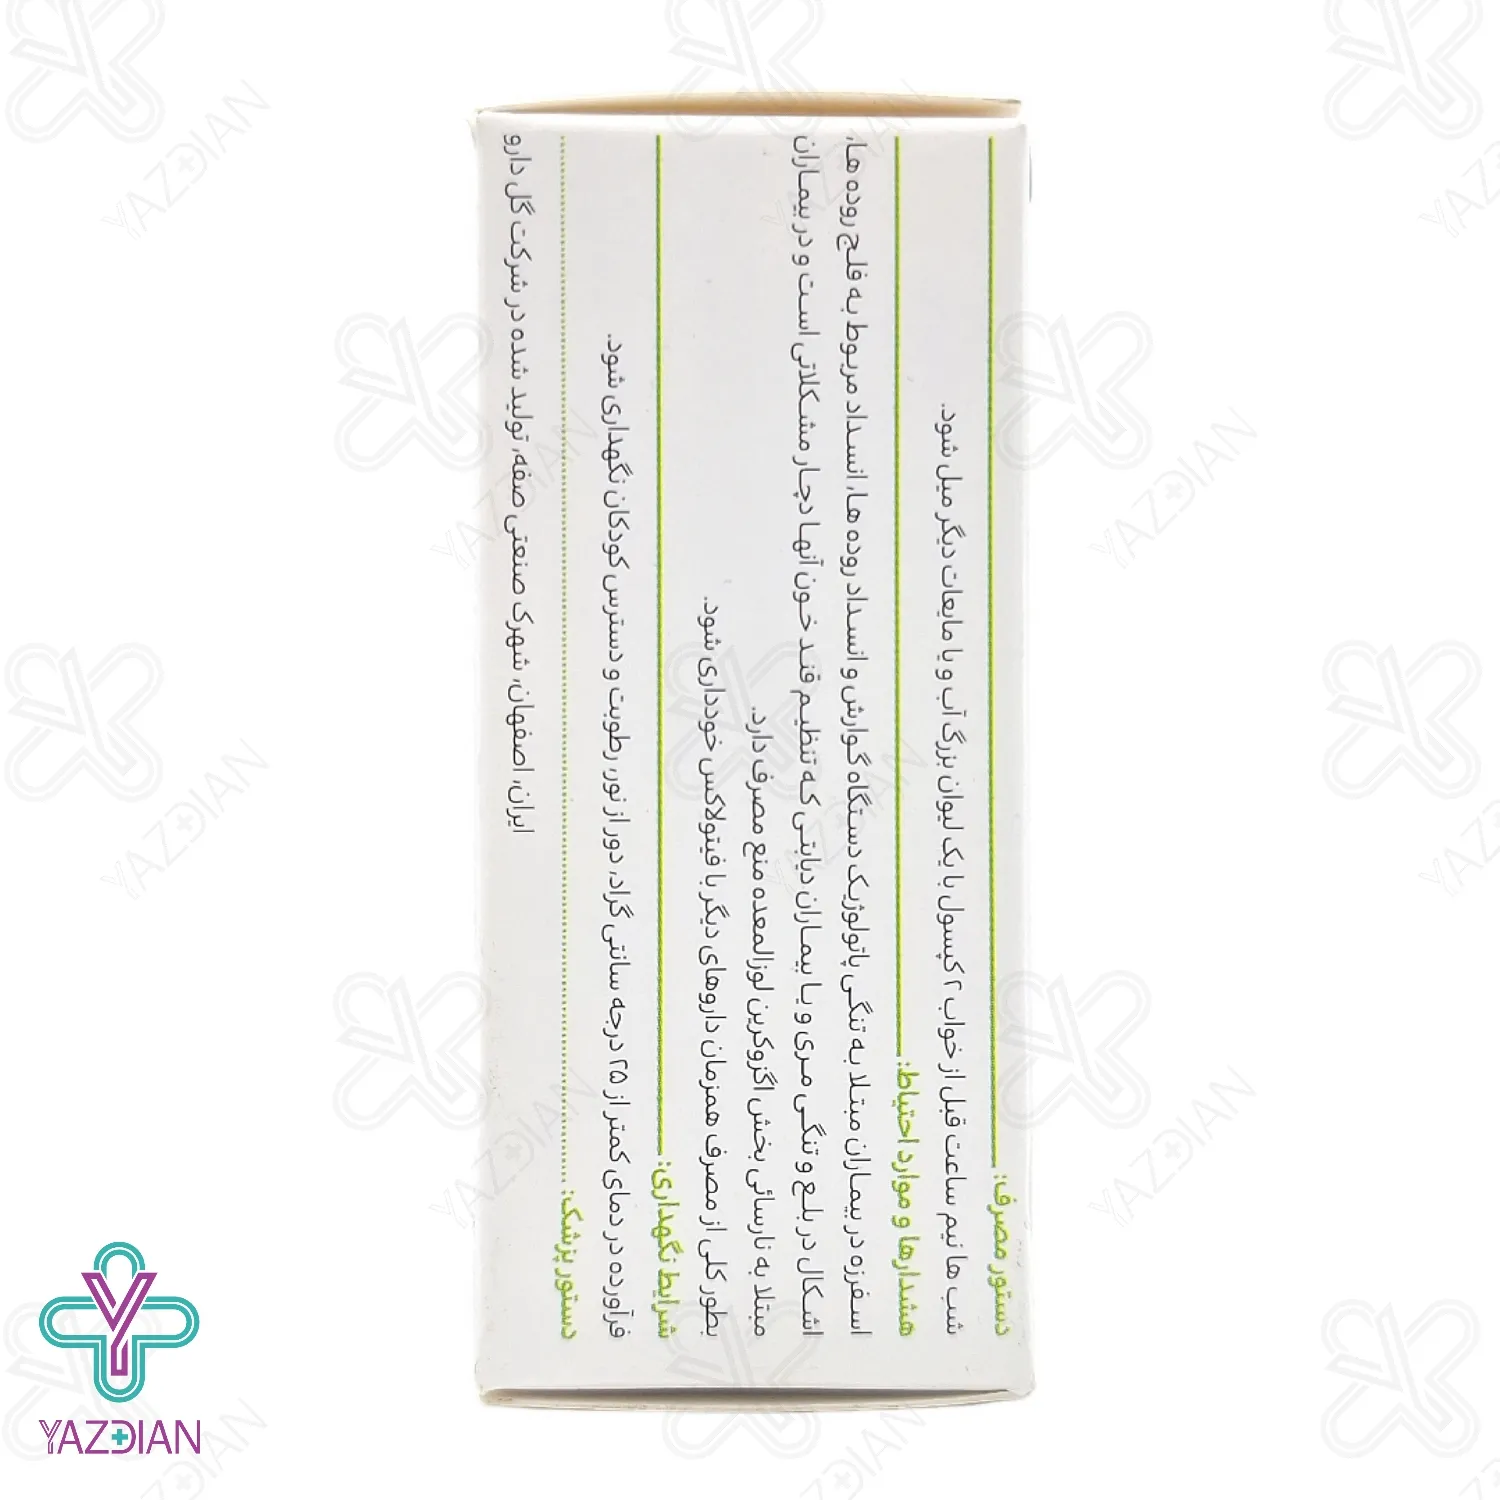 دستور مصرف:
شب ها نیم ساعت قبل از خواب ۲ کپسول با یک لیوان بزرگ آب و یا مایعات دیگر میل شود.
هشدارها و موارد احتیاط:
اسفرزه در بیماران مبتلا به تنگی پاتولوژیک دستگاه گوارش و انسداد روده ها، انسداد مربوط به فلج روده ها،
اشکال در بلع و تنگی مری و یا بیماران دیابتی که تنظیم قند خون آنها دچار مشکلاتی است و در بیماران
مبتلا به نارسائی بخش اگزوکرین لوزالمعده منع مصرف دارد.
بطور کلی از مصرف همزمان داروهای دیگر با فیتولاکس خودداری شود.
شرایط نگهداری:
فرآورده در دمای کمتر از ۲۵ درجه سانتی گراد، دور از نور، رطوبت و دسترس کودکان نگهداری شود.
دستور پزشک:
ایران، اصفهان، شهرک صنعتی صفه، تولید شده در شرکت گل دارو
YAZDIAN